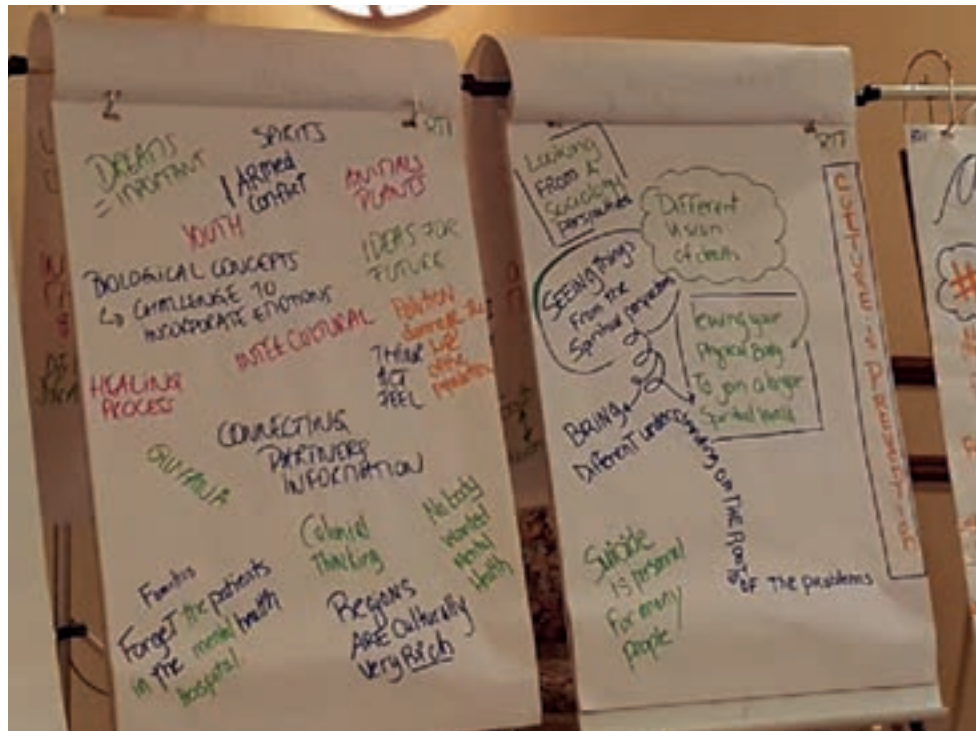 DREAMS
= IMPORTANT
SPIRITS
ARMED
CONFLICT
ANIMALS
PLANTS
YOUTH
IDEAS FOR
FUTURE
BIOLOGICAL CONCEPTS
↳ CHALLENGE TO
INCORPORATE EMOTIONS
INTERCULTURAL
THINK
ACT
FEEL
HEALING
PROCESS
CONNECTING
PARTNERS
INFORMATION
GUYANA
Colonial
Thinking
Nobody
wanted
Mental
Health
Families
Forget the patients
in the mental health
hospital.
REGIONS
ARE Culturally
very Rich
Looking
FROM A
Sociology
perspective
Different
Vision
of death
SEEING things
From the
Spiritual perspective
Physical Body
To join a larger
Spiritual World
BRING
Different understanding OF THE ROOTS
OF THE problems
Suicide
is personal
for many
people